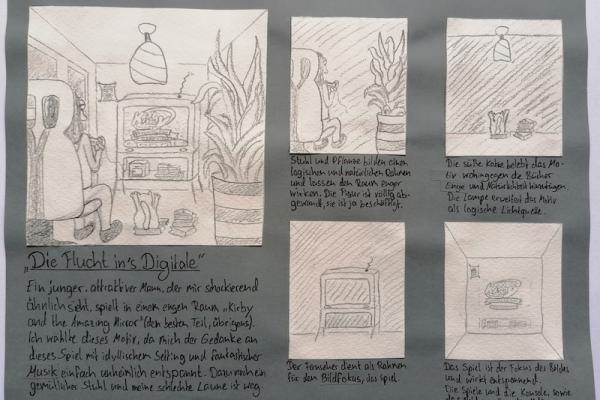 Kirby
"Die Flucht in's Digitale"
Ein junger, attraktiver Mann, der mir shockierend
ähnlich sieht, spielt in einem engen Raum „Kirby
and the Amazing Mirror" (den besten Teil, übrigens).
Ich wählte dieses Motiv, da mich der Gedanke an
dieses Spiel mit idyllischem Setting und fantastischer
Musik einfach unheimlich entspannt. Dazu noch ein
gemütlicher Stuhl und meine schlechte Laune ist weg.
Stuhl und Pflanze bilden einen
logischen und natürlichen Rahmen
und lassen den Raum enger
wirken. Die Figur ist völlig ab-
gewandt, sie ist ja beschäftigt.
Die süße Katze belebt das Mo-
tiv wohingegen die Bücher
Enge und Natürlichkeit hinzufügen.
Die Lampe erweitert das Motiv
als logische Lichtquelle.
Der Fernseher dient als Rahmen
für den Bildfokus, das Spiel.
Das Spiel ist der Fokus des Bildes
und wirkt entspannend.
Die Spiele und die Konsole, sowie